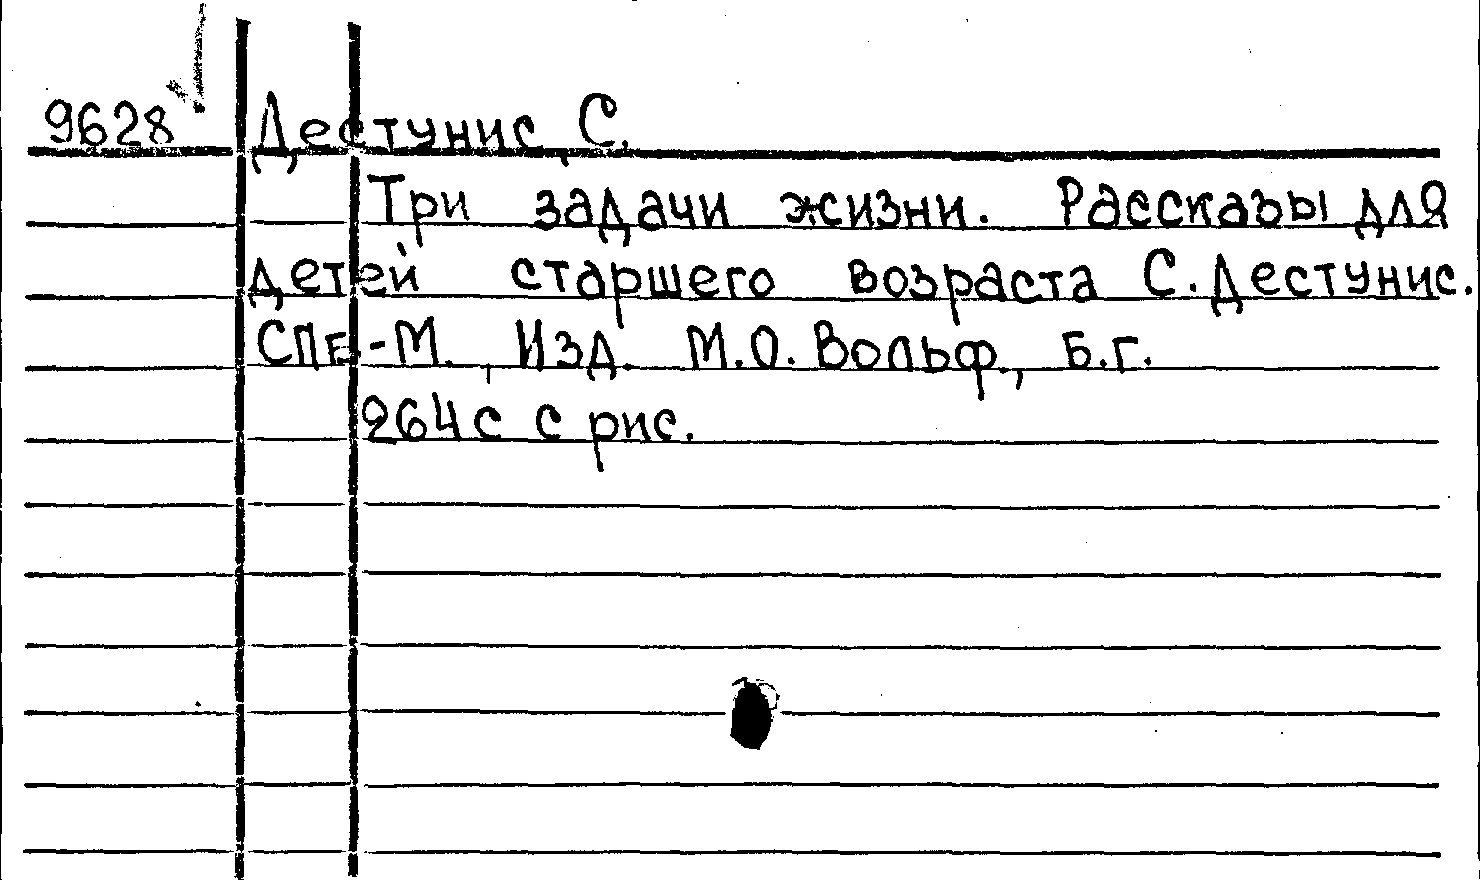 9628 Дестунис, С.
Три задачи жизни. Рассказы для
детей старшего возраста С. Дестунис.
СПБ.-М., Изд. М.О. Вольф., Б.г.
264 с с рис.